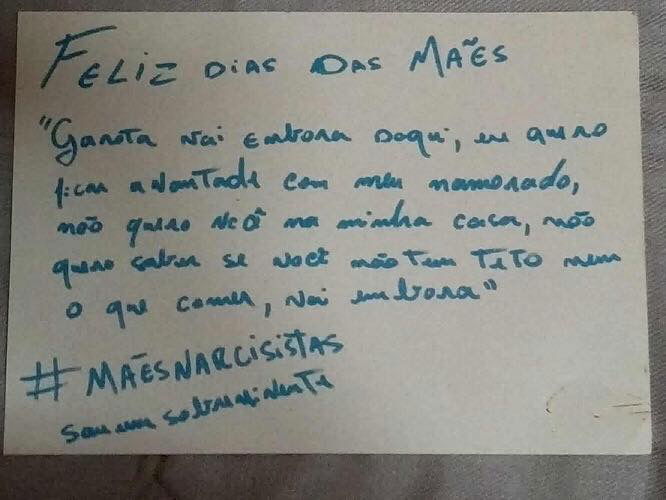 FELIZ DIAS DAS MÃES
"Garota vai embora daqui, eu quero
ficar avontade com meu namorado,
não quero vcê na minha casa, não
quero saber se você não tem TETO nem
o que comer, vai embora"
#MÃESNARCISISTAS
sou um sobrevivente